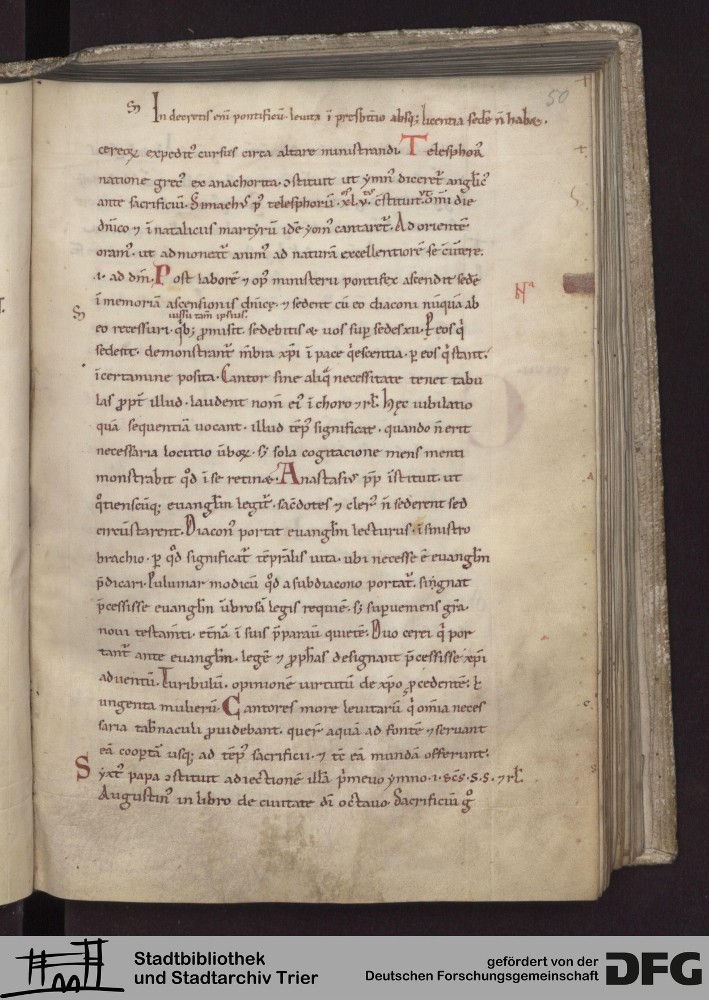 50
In decretis eni pontificu leuita i presbitio absq; licentia sede n habet.
cereoꝝ expedit cursus circa altare ministrandi. Telesphorꝰ
natione grecꝰ ex anachorita ꝯstituit ut ymnꝰ diceret anglicꝰ
ante sacrificiu. Simachꝰ pꝰ telesphoru .xl.v. cstituit omi die
dnico ⁊ i natalicus martyru ide ymn cantaret. Ad oriente
oram. ut admoneat animꝰ ad natura excellentiore se cuertere.
.i. ad dm. Post labore ⁊ opꝰ ministerii pontifex ascendit sede
i memoria ascensionis dnice. ⁊ sedent cu eo diaconi nuqua ab
iussu tam ipsius.
eo recessuri. qb; pmisit sedebitis et uos sup sedes xii. P eos q
sedent. demonstrant mbra xpi i pace qescentia. p eos q stant.
icertamine posita. Cantor sine aliq necessitate tenet tabu
las ppt illud. laudent nom eiꝰ i choro ⁊ rl. hęc iubilatio
qua sequentia uocant. illud tepꝰ significat. quando n erit
necessaria locutio uboꝝ. s; sola cogitacione mens menti
monstrabit qd i se retinet. Anastasiꝰ pp istituit. ut
qtienscuq; euanglm legit. sacdotes ⁊ clerꝰ n sederent sed
circustarent. Diaconꝰ portat euanglm lecturus. i sinistro
brachio. p qd significat tepralis uita. ubi necesse e euanglm
pdicari. Puluinar modicu qd a subdiacono portat. singnat
pcessisse euanglm ubrosa legis requie. s; supueniens gra
noui testamti. etna i suis pparau quiete. Duo cerei q por
tant ante euanglm. lege ⁊ pphas designant pcessisse xpi
aduentu. Turibulu. opinione uirtutu de xpo pcedente. ł
ungenta mulieru. Cantores more leuitaru q omia neces
saria tabnaculi prouidebant. quer aqua ad fonte ⁊ seruant
ea coopta usq; ad tepꝰ sacrificii. ⁊ tc ea munda offerunt.
Syxtꝰ papa ꝯstituit adiectione illa pmeuo ymno .i. scs. s. s. ⁊ rl.
Augustinꝰ in libro de ciuitate di octauo. Sacrificiu g
Stadtbibliothek
und Stadtarchiv Trier
gefördert von der
Deutschen Forschungsgemeinschaft
DFG